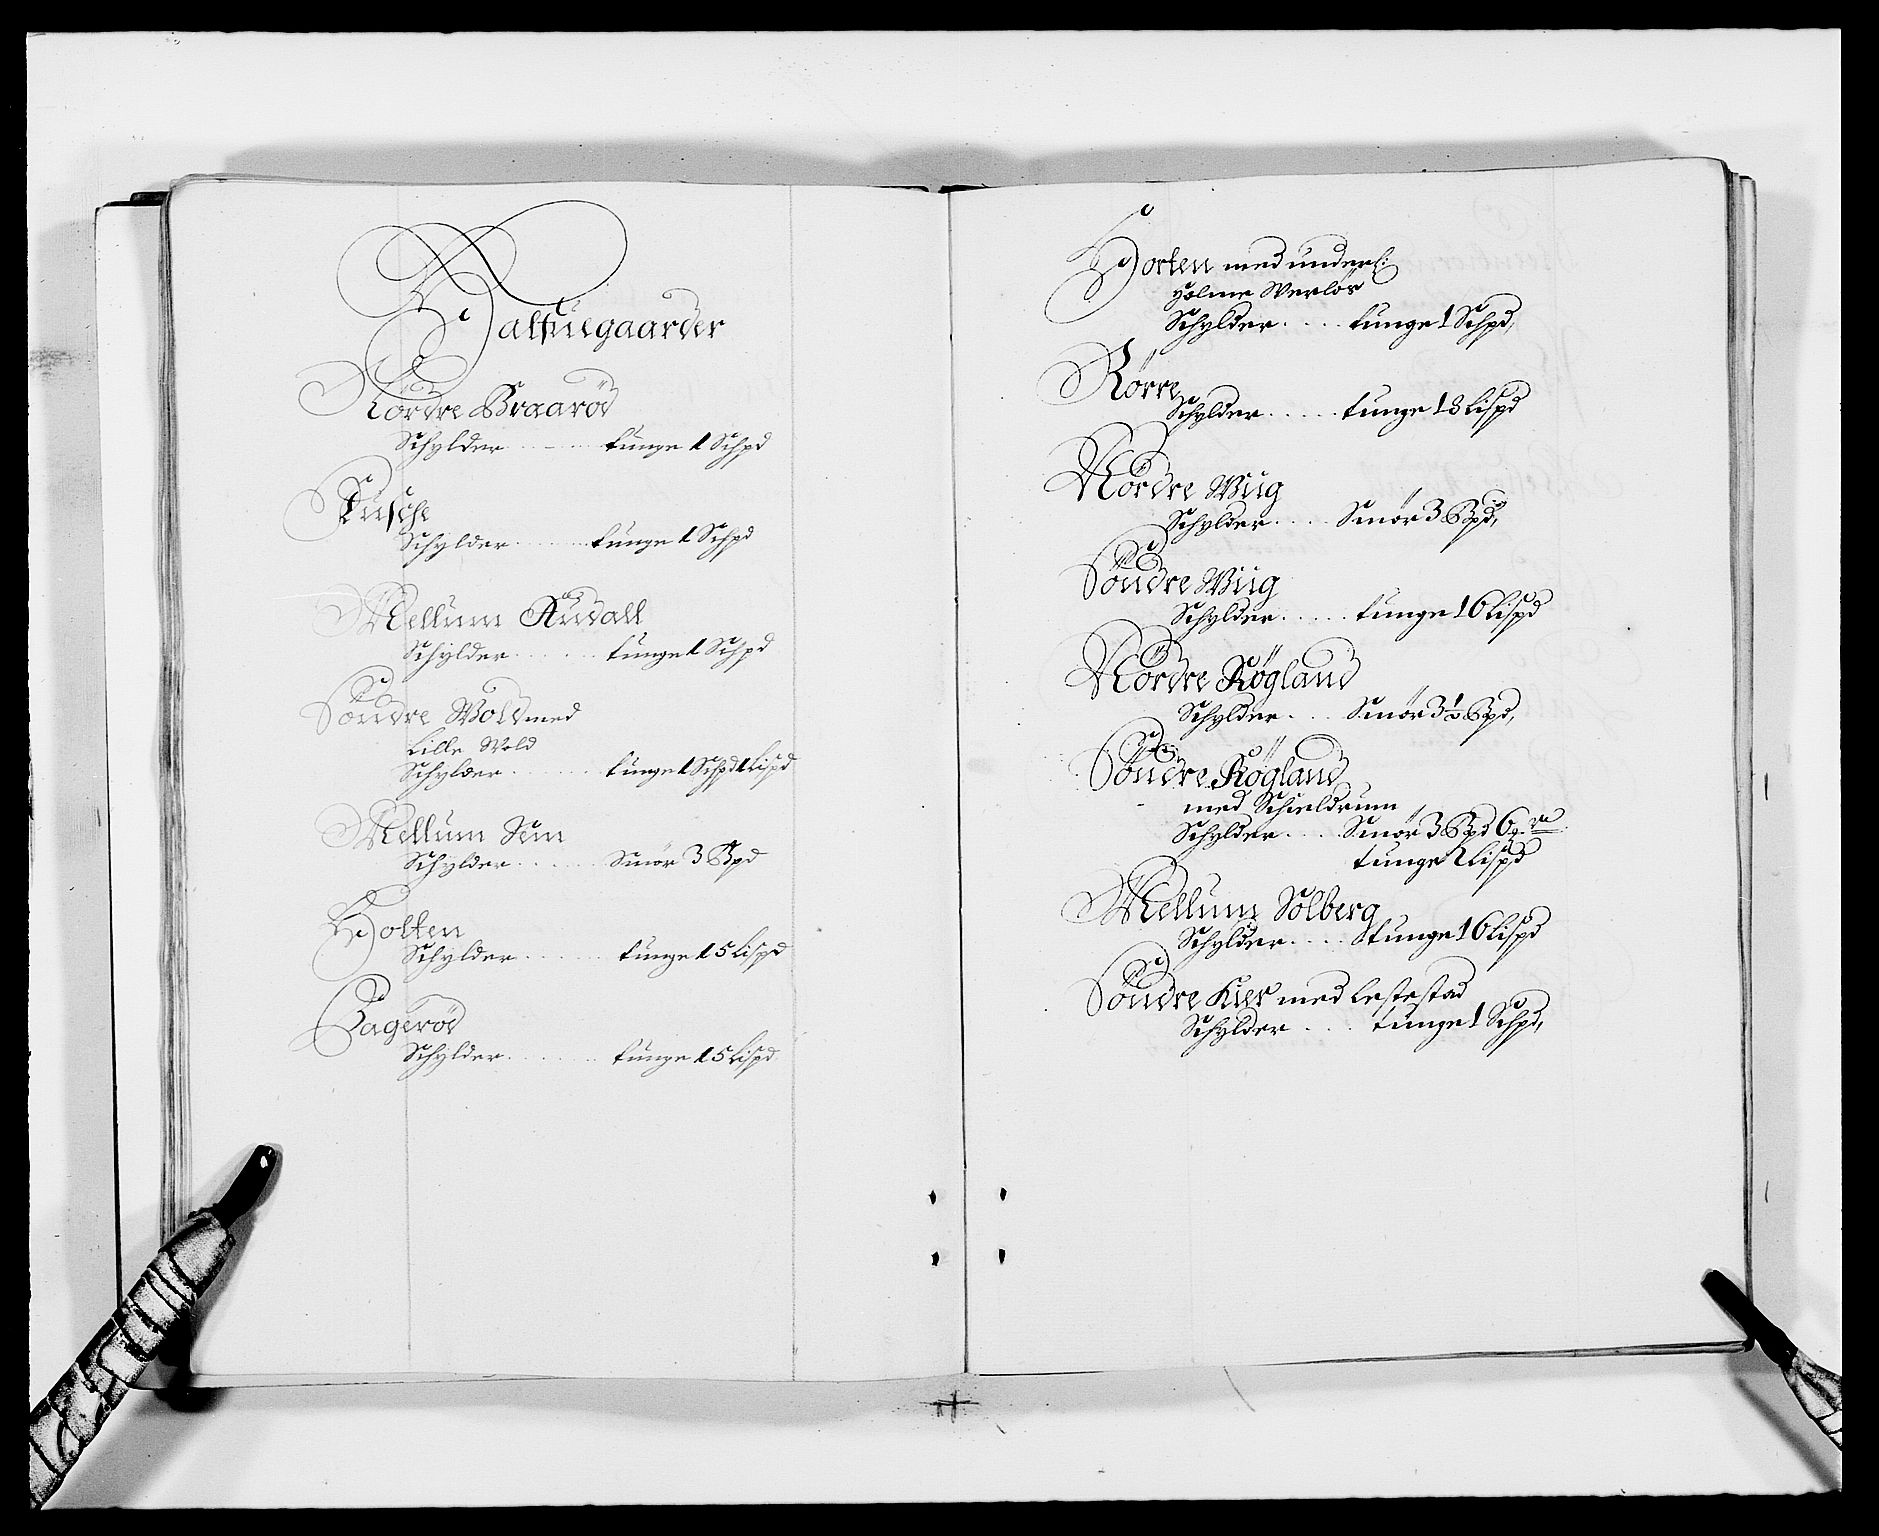 Halfuegaarder
Nordre Braarød
Schylder ..... tunge 1 Schpd
Tusche
Schylder ..... tunge 1 Schpd
Mellum Audall
Schylder ..... tunge 1 Schpd
Søndre Wold med
Lille Wold
Schylder ..... tunge 1 Schpd 1 Lispd
Mellum Sem
Schylder ..... Smør 3 Bpd
Holten
Schylder ..... tunge 15 Lispd
Bagerød
Schylder ..... tunge 15 Lispd
Horten med underl:
Holme Werlös
Schylder .... tunge 1 Schpd,
Rörre
Schylder ..... tunge 18 Lispd
Nördre Wiig
Schylder .... Smör 3 Bpd,
Söndre Wiig
Schylder ..... tunge 16 Lispd
Nördre Røgland
Schylder .... Smör 3½ Bpd,
Söndre Røgland
med Schieldrum
Schylder .... Smör 3 Bpd 6
tunge 2 Lispd
Mellum Solberg
Schylder .... tunge 16 Lispd
Söndre Kier med Lestestad
Schylder .... tunge 1 Schpd,